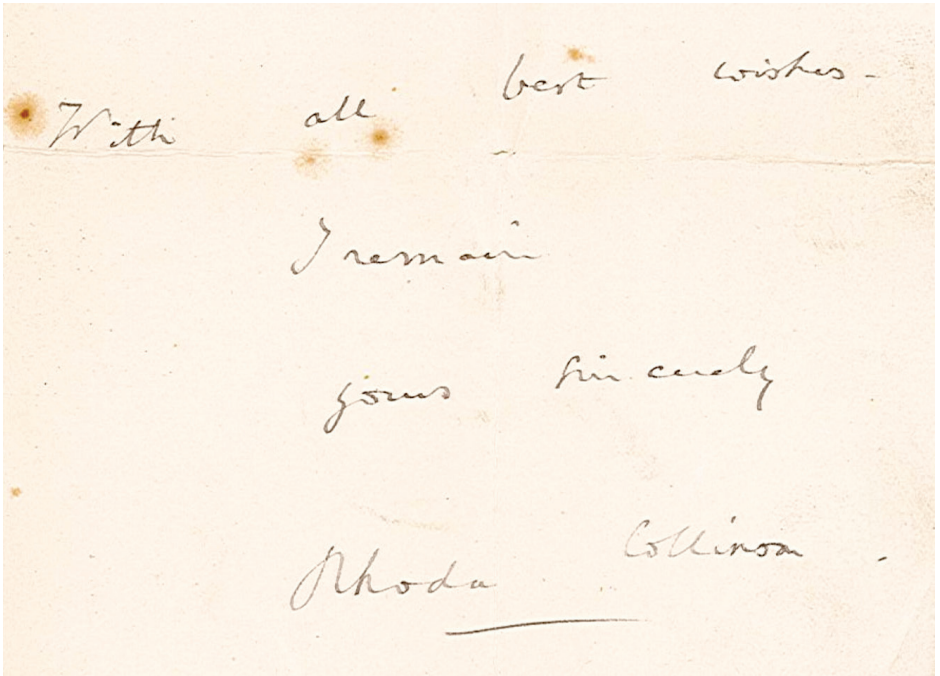 With all best wishes -
I remain
yours sincerely
Rhoda Collinson.